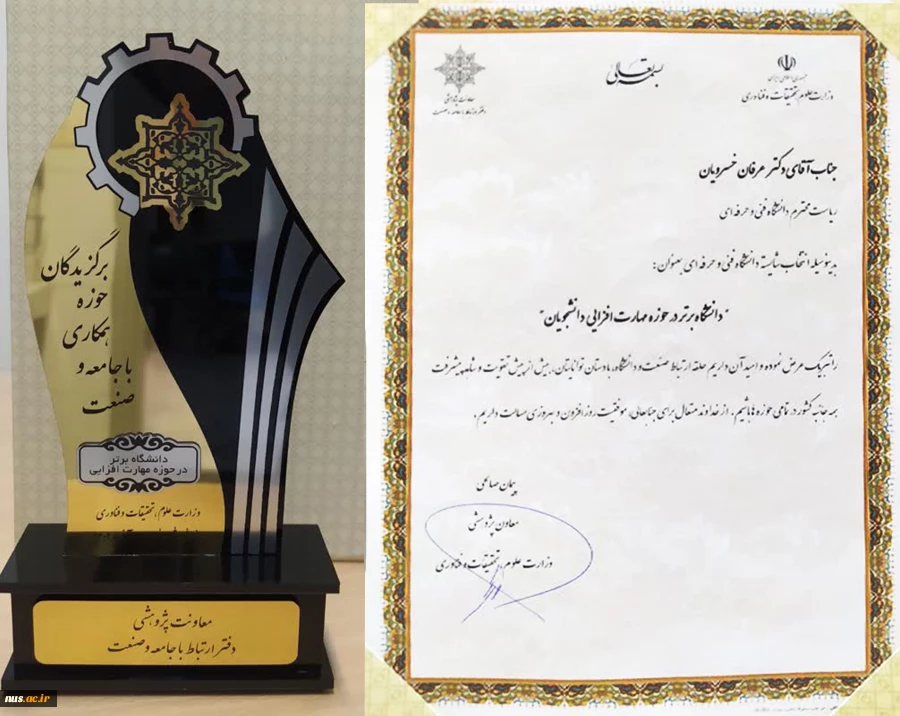 برگزیدگان
حوزه
همکاری
با جامعه و
صنعت
دانشگاه برتر
در حوزه مهارت افزایی
وزارت علوم، تحقیقات و فناوری
معاونت پژوهشی
دفتر ارتباط با جامعه و صنعت
nus.ac.ir
بسمه تعالی
جمهوری اسلامی ایران
وزارت علوم، تحقیقات و فناوری
معاونت پژوهشی
دفتر ارتباط با جامعه و صنعت
جناب آقای دکتر عرفان خسرویان
ریاست محترم دانشگاه فنی و حرفه ای
بدینوسیله انتخاب شایسته دانشگاه فنی و حرفه ای بعنوان:
"دانشگاه برتر در حوزه مهارت افزایی دانشجویان"
را تبریک عرض نموده و امید آن داریم حلقه ارتباط صنعت و دانشگاه، با دستان توانایتان، بیش از پیش تقویت و شاهد پیشرفت
همه جانبه کشور در تمامی حوزه ها باشیم. از خداوند متعال برای جنابعالی، موفقیت روز افزون و بهروزی مسالت داریم.
پیمان صالحی
معاون پژوهشی
وزارت علوم، تحقیقات و فناوری